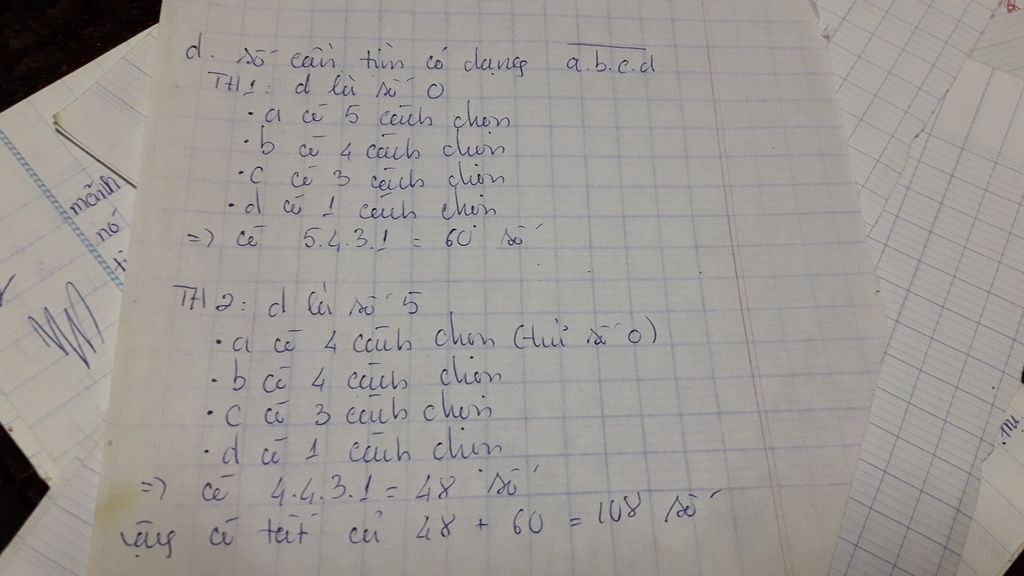 d. Số cần tìm có dạng a.b.c.d
TH1: d là số 0
• a có 5 cách chọn
• b có 4 cách chọn
• c có 3 cách chọn
• d có 1 cách chọn
=> có 5.4.3.1 = 60 số
TH2: d là số 5
• a có 4 cách chọn (trừ số 0)
• b có 4 cách chọn
• c có 3 cách chọn
• d có 1 cách chọn
=> có 4.4.3.1 = 48 số
Vậy có tất cả 48 + 60 = 108 số
mãnh
nó